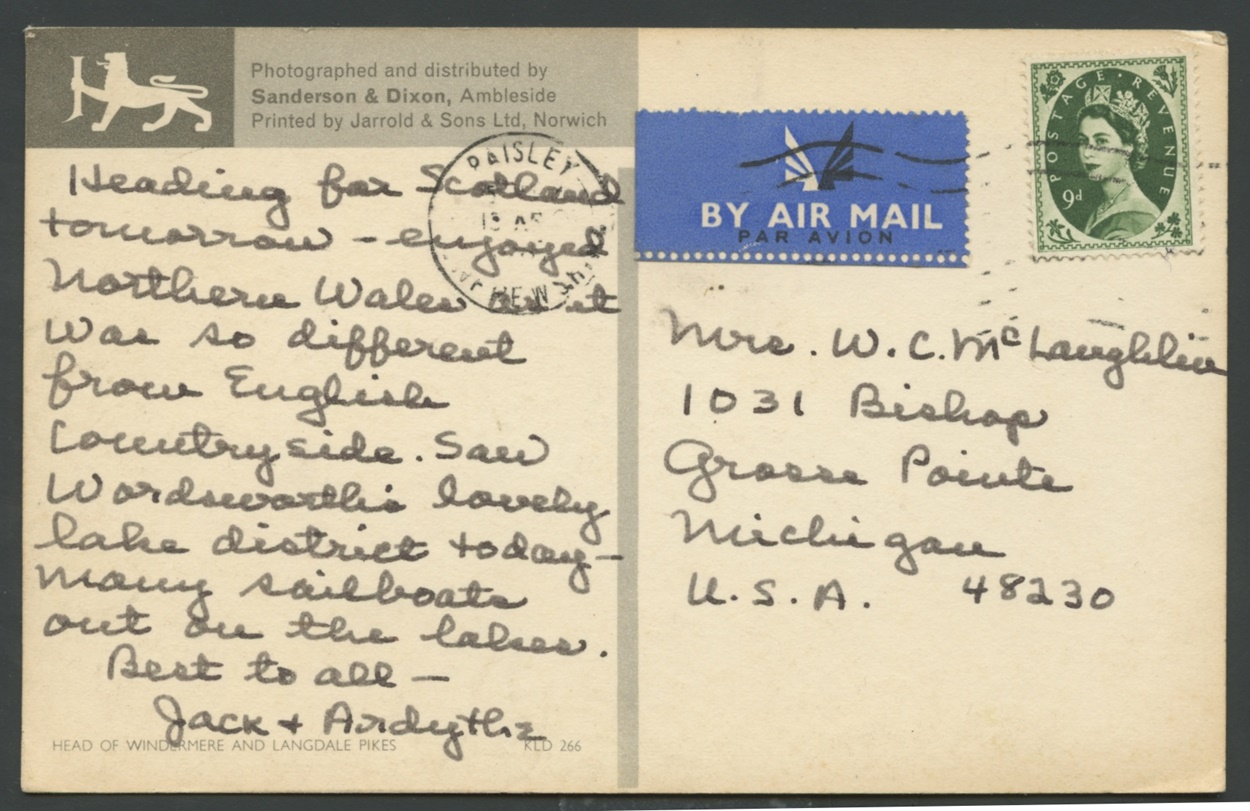 Photographed and distributed by
Sanderson & Dixon, Ambleside
Printed by Jarrold & Sons Ltd, Norwich
PAISLEY
Heading for Scotland
tomorrow - enjoyed
Northern Wales as it
was so different
from English
Countryside. Saw
Wordsworth's lovely
lake district today -
many sailboats
out on the lakes.
Best to all -
Jack + Ardythe
HEAD OF WINDERMERE AND LANGDALE PIKES
KLD 266
BY AIR MAIL
PAR AVION
POSTAGE REVENUE
9d
Mrs. W. C. McLaughlin
1031 Bishop
Grosse Pointe
Michigan
U.S.A. 48230